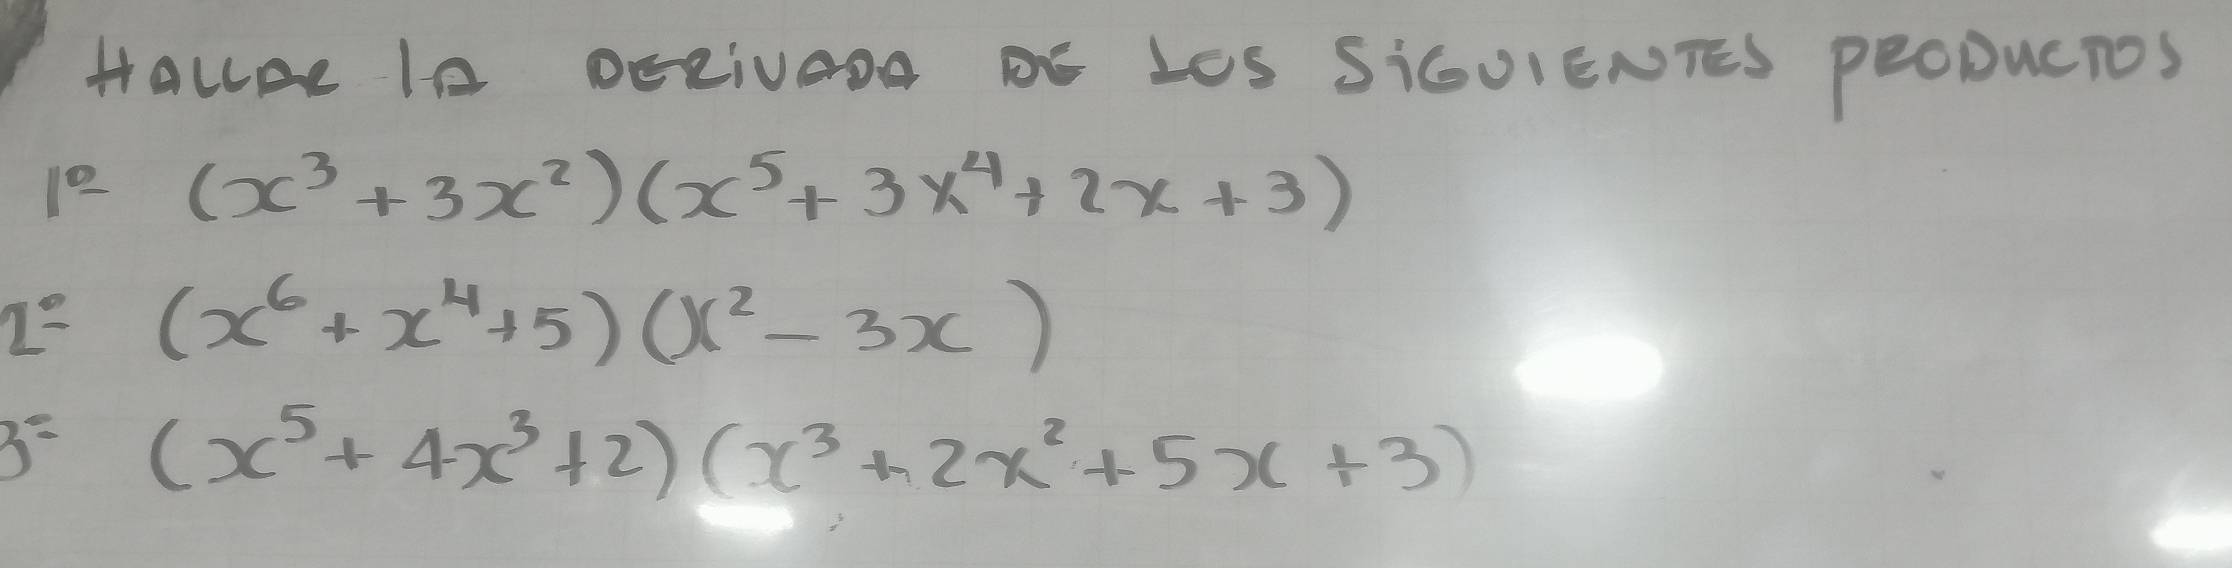 HALLAR LA DERIVADA DE LOS SIGUIENTES PRODUCTOS
1º (x³ + 3x²)(x⁵ + 3x⁴ + 2x + 3)
2º (x⁶ + x⁴ + 5)(x² - 3x)
3º (x⁵ + 4x³ + 2)(x³ + 2x² + 5x + 3)